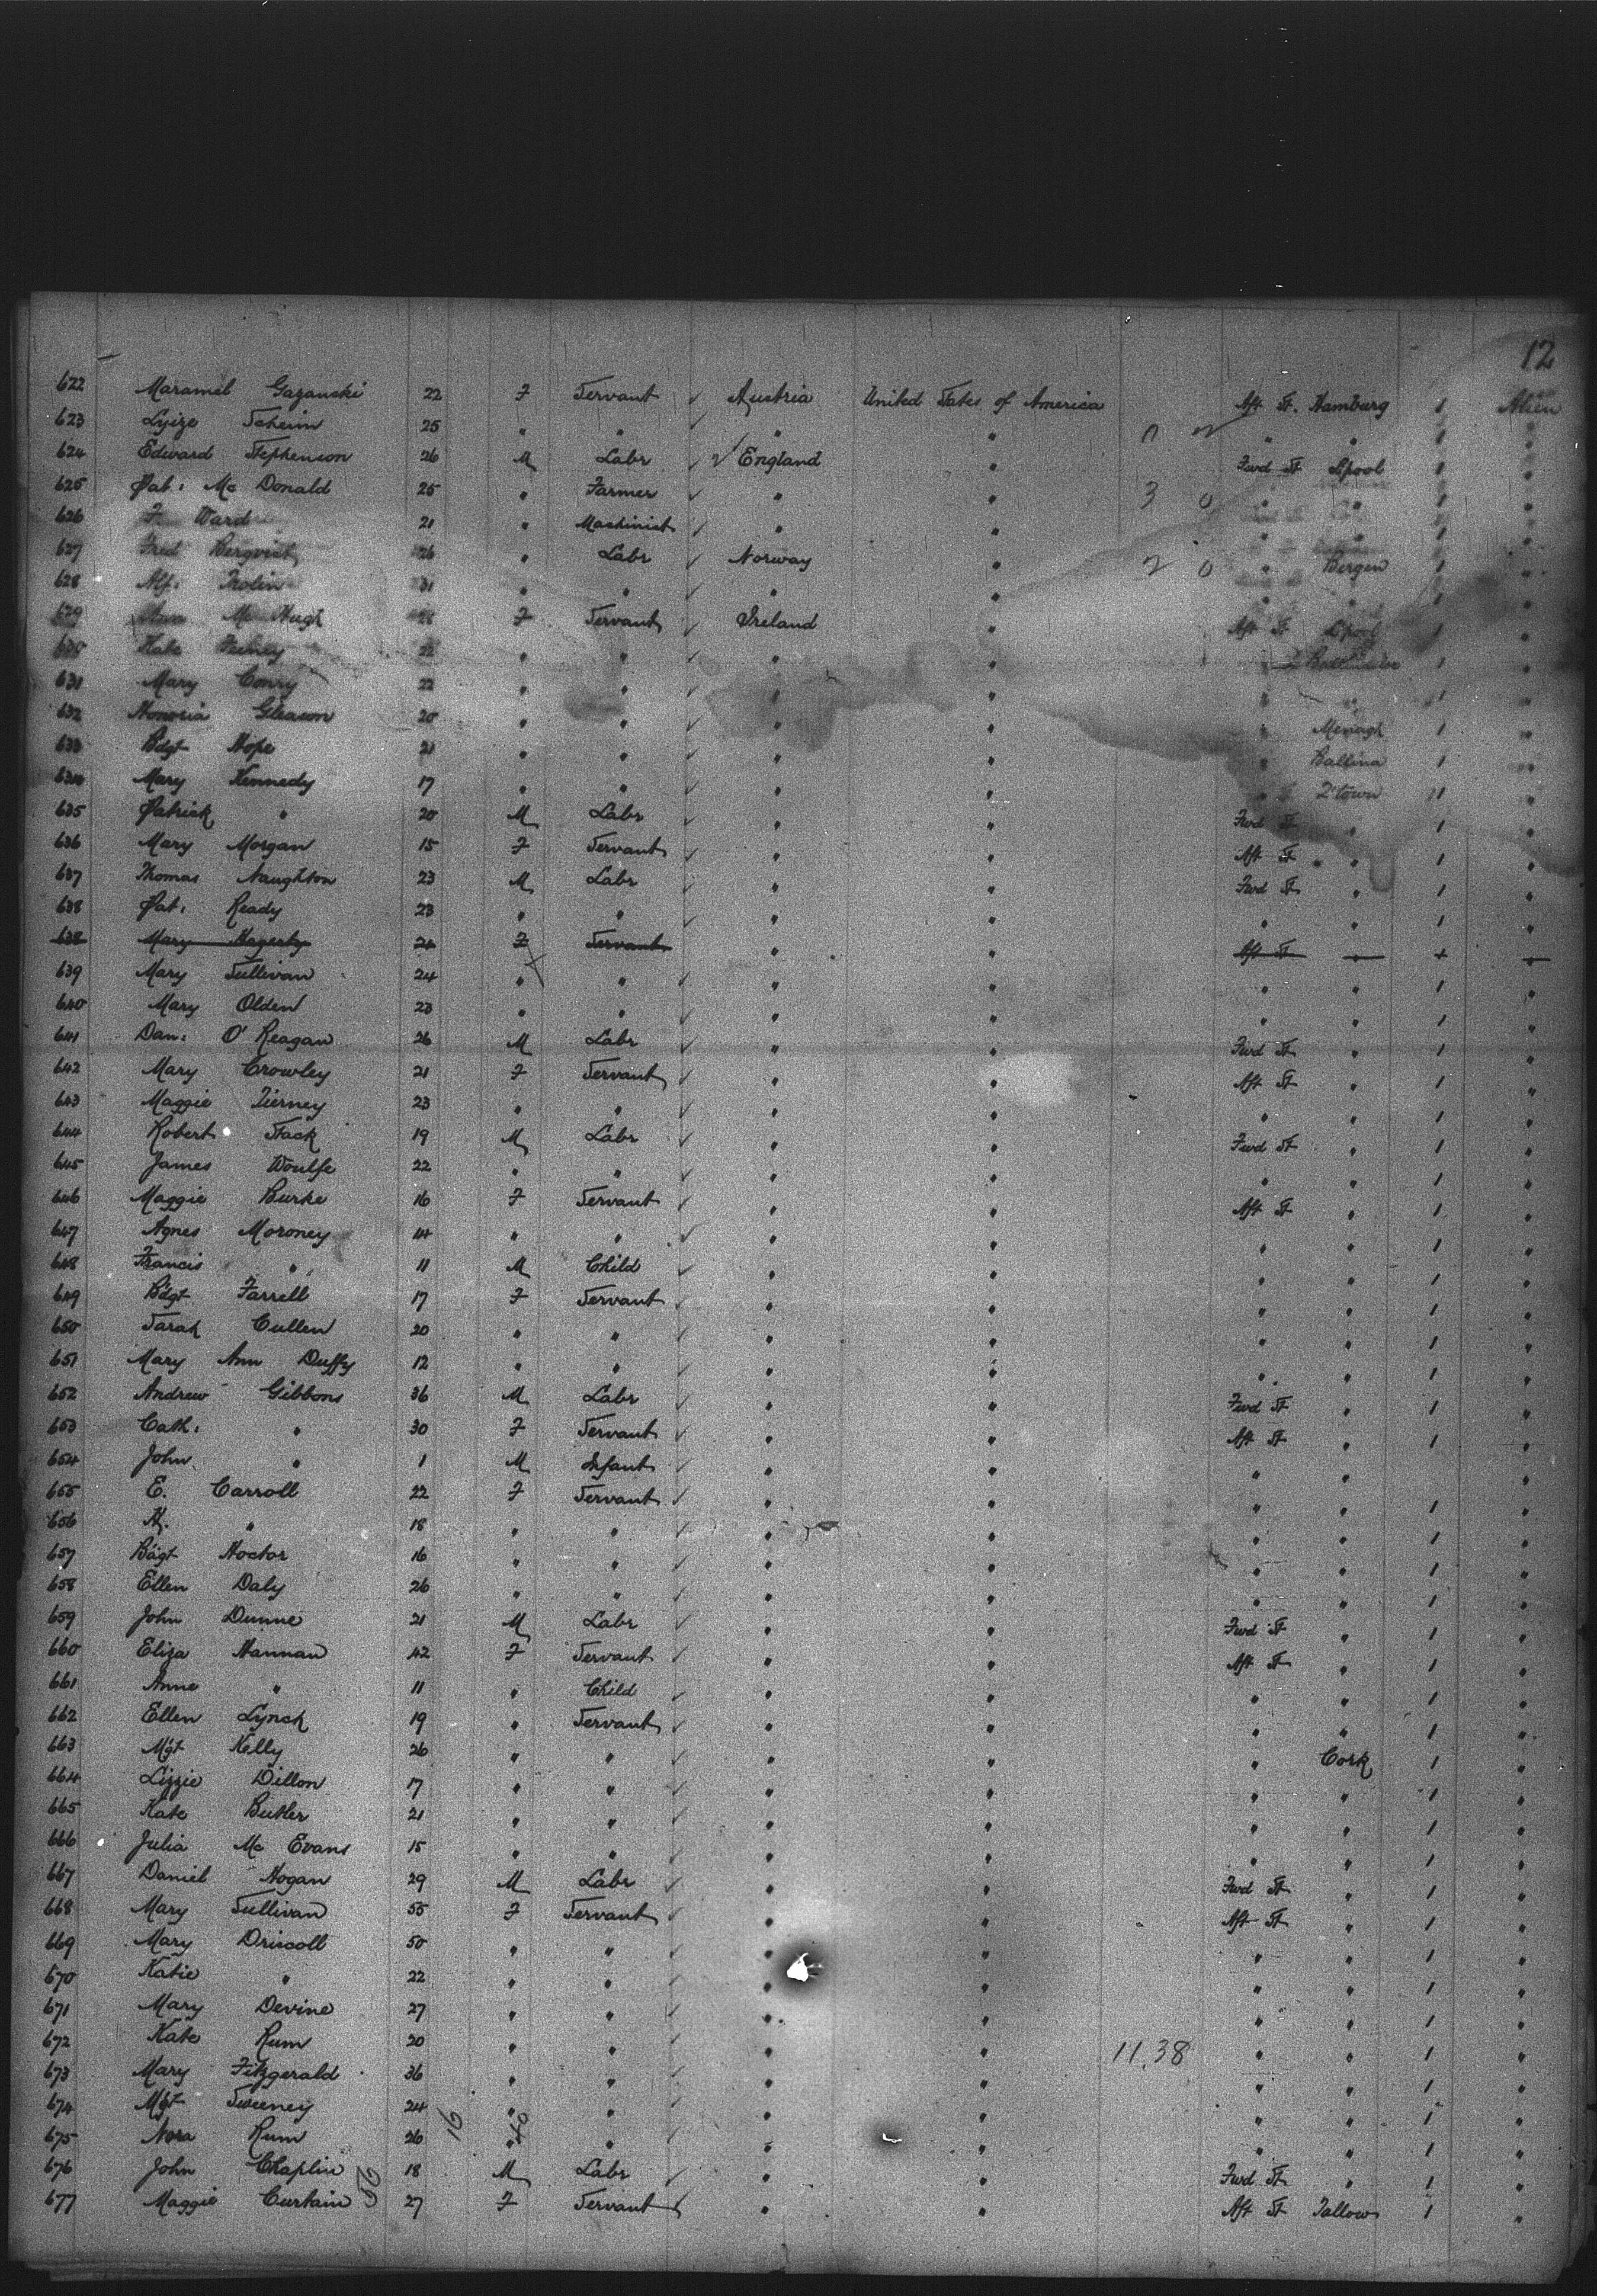 12
622 Maramel Gazanski 22 F Servant ✓ Austria United States of America Aft St. Hamburg 1 Alien
623 Lyize Scheim 25 " " ✓ " " " " 1 "
624 Edward Stephenson 26 M Labr ✓ ✓ England " Fwd St Lpool 1 "
625 Pat: Mc Donald 25 " Farmer ✓ " " 3 0 " " 1 "
626 F Ward 21 " Machinist ✓ " " " " 1 "
627 Fred Bergvist 26 " Labr ✓ Norway " 2 0 " Bergen 1 "
628 Alf: Trolin 31 " " ✓ " " " " 1 "
629 Mc Hugh 28 F Servant ✓ Ireland " Aft St Lpool 1 "
630 Kate Feeney 22 " " ✓ " " 1 "
631 Mary Conry 22 " " ✓ " " " " 1 "
632 Honoria Gleason 20 " " ✓ " " " Menagh 1 "
633 Bdgt Hope 21 " " ✓ " " " Ballina 1 "
634 Mary Kennedy 17 " " ✓ " " " Q'town 1 "
635 Patrick " 20 M Labr ✓ " " Fwd St " 1 "
636 Mary Morgan 15 F Servant ✓ " " Aft St " 1 "
637 Thomas Naughton 23 M Labr ✓ " " Fwd St " 1 "
638 Pat: Ready 23 " " ✓ " " " " 1 "
638 Mary Hagerty 24 F Servant " " Aft St " 1 "
639 Mary Sullivan 24 " " ✓ " " " " 1 "
640 Mary Olden 23 " " ✓ " " " " 1 "
641 Dan: O'Reagan 26 M Labr ✓ " " Fwd St " 1 "
642 Mary Crowley 21 F Servant ✓ " " Aft St " 1 "
643 Maggie Tierney 23 " " ✓ " " " " 1 "
644 Robert Stack 19 M Labr ✓ " " Fwd St " 1 "
645 James Woulfe 22 " " ✓ " " " " 1 "
646 Maggie Burke 16 F Servant ✓ " " Aft St " 1 "
647 Agnes Moroney 14 " " ✓ " " " " 1 "
648 Francis " 11 M Child ✓ " " " " 1 "
649 Bdgt Farrell 17 F Servant ✓ " " " " 1 "
650 Sarah Cullen 20 " " ✓ " " " " 1 "
651 Mary Ann Duffy 12 " " ✓ " " " " 1 "
652 Andrew Gibbons 36 M Labr ✓ " " Fwd St " 1 "
653 Cath: " 30 F Servant ✓ " " Aft St " 1 "
654 John " 1 M Infant ✓ " " " " "
655 E. Carroll 22 F Servant ✓ " " " " 1 "
656 K. " 18 " " ✓ " " " " 1 "
657 Bdgt Hoctor 16 " " ✓ " " " " 1 "
658 Ellen Daly 26 " " ✓ " " " " 1 "
659 John Dunne 21 M Labr ✓ " " Fwd St " 1 "
660 Eliza Hannan 42 F Servant ✓ " " Aft St " 1 "
661 Anne " 11 " Child ✓ " " " " 1 "
662 Ellen Lynch 19 " Servant ✓ " " " " 1 "
663 Mgt Kelly 26 " " ✓ " " " Cork 1 "
664 Lizzie Dillon 17 " " ✓ " " " " 1 "
665 Kate Butler 21 " " ✓ " " " " 1 "
666 Julia Mc Evans 15 " " ✓ " " " " 1 "
667 Daniel Hogan 29 M Labr ✓ " " Fwd St " 1 "
668 Mary Sullivan 55 F Servant ✓ " " Aft St " 1 "
669 Mary Driscoll 50 " " ✓ " " " " 1 "
670 Katie " 22 " " ✓ " " " " 1 "
671 Mary Devine 27 " " ✓ " " " " 1 "
672 Kate Rum 20 " " ✓ " " 11.38 " " 1 "
673 Mary Fitzgerald 36 " " ✓ " " " " 1 "
674 Mgt Sweeney 24 " " ✓ " " " " 1 "
675 Nora Rum 26 16 " 40 " ✓ " " " " 1 "
676 John Chaplin 18 M Labr ✓ " " Fwd St " 1 "
677 Maggie Curtain 27 F Servant ✓ " " Aft St Tallow 1 "